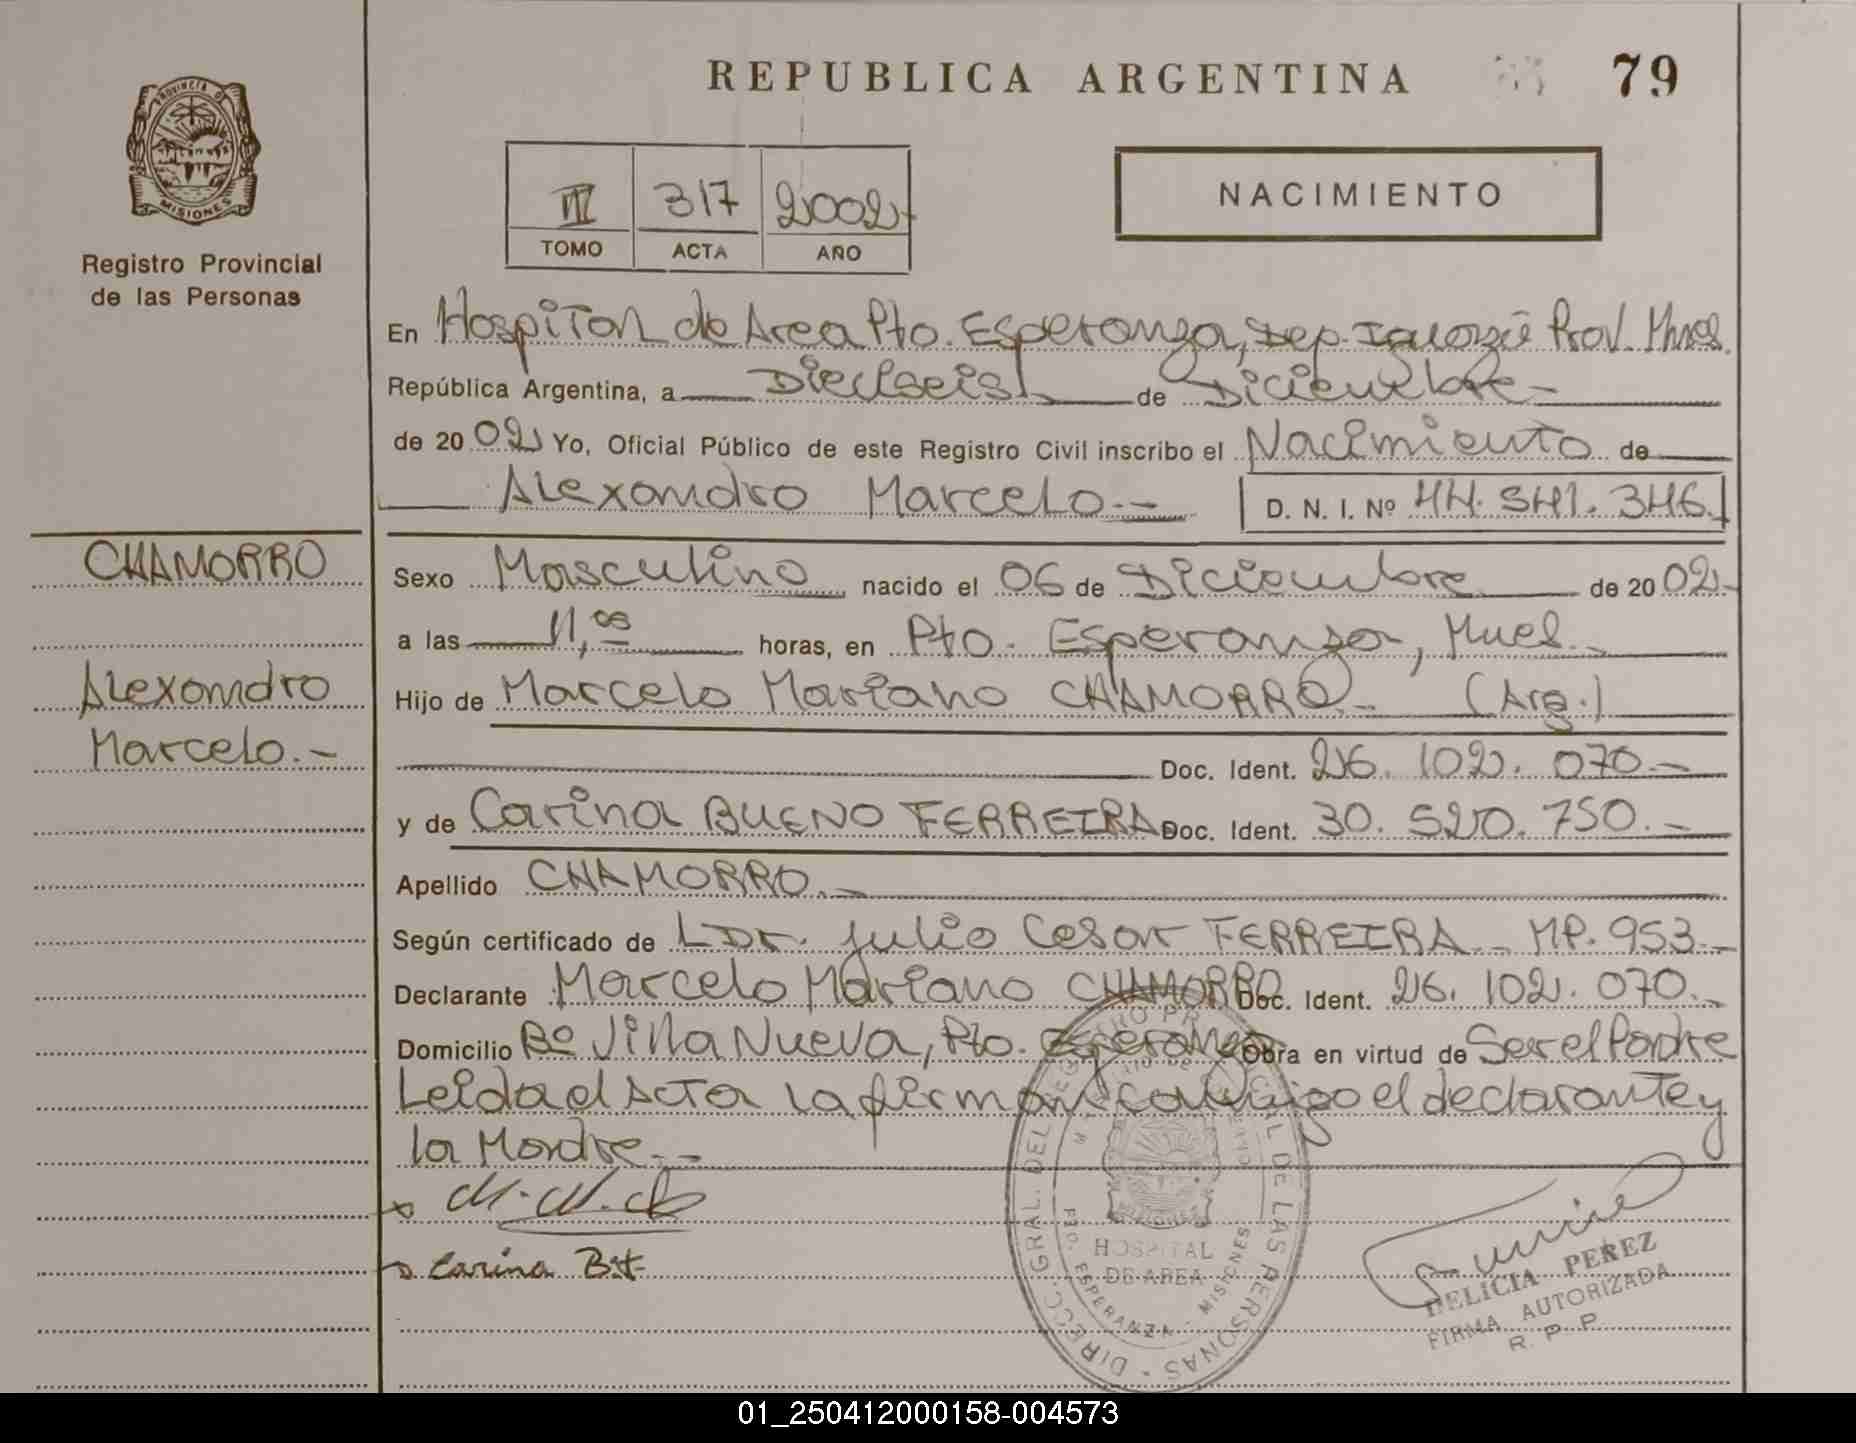 REPUBLICA ARGENTINA
79
PROVINCIA DE
MISIONES
Registro Provincial
de las Personas
III 317 2002
TOMO ACTA AÑO
NACIMIENTO
En Hospital de Area Pto. Esperanza, Dep. Iguazú Prov. Mnes.
República Argentina, a Dieciseis de Diciembre
de 2002 Yo, Oficial Público de este Registro Civil inscribo el Nacimiento de
Alexandro Marcelo.- D. N. I. Nº 44.541.346
CHAMORRO
Alexandro
Marcelo.-
Sexo Masculino nacido el 06 de Diciembre de 2002
a las 11,00 horas, en Pto. Esperanza, Mnes.
Hijo de Marcelo Mariano CHAMORRO.- (Arg.)
Doc. Ident. 26.102.070.-
y de Carina BUENO FERREIRA Doc. Ident. 30.520.750.-
Apellido CHAMORRO.-
Según certificado de Dr. Julio Cesar FERREIRA.- MP. 953.-
Declarante Marcelo Mariano CHAMORRO Doc. Ident. 26.102.070.-
Domicilio Bº Villa Nueva, Pto. Esperanza Obra en virtud de Ser el Padre
Leida el Acta la firman conmigo el declarante y
la Madre.-
Carina B.F.
DIRECC. GRAL. DEL REGISTRO PROVINCIAL DE LAS PERSONAS
HOSPITAL
DE AREA
PTO. ESPERANZA - MISIONES
DELICIA PEREZ
FIRMA AUTORIZADA
R. P. P.
01_250412000158-004573